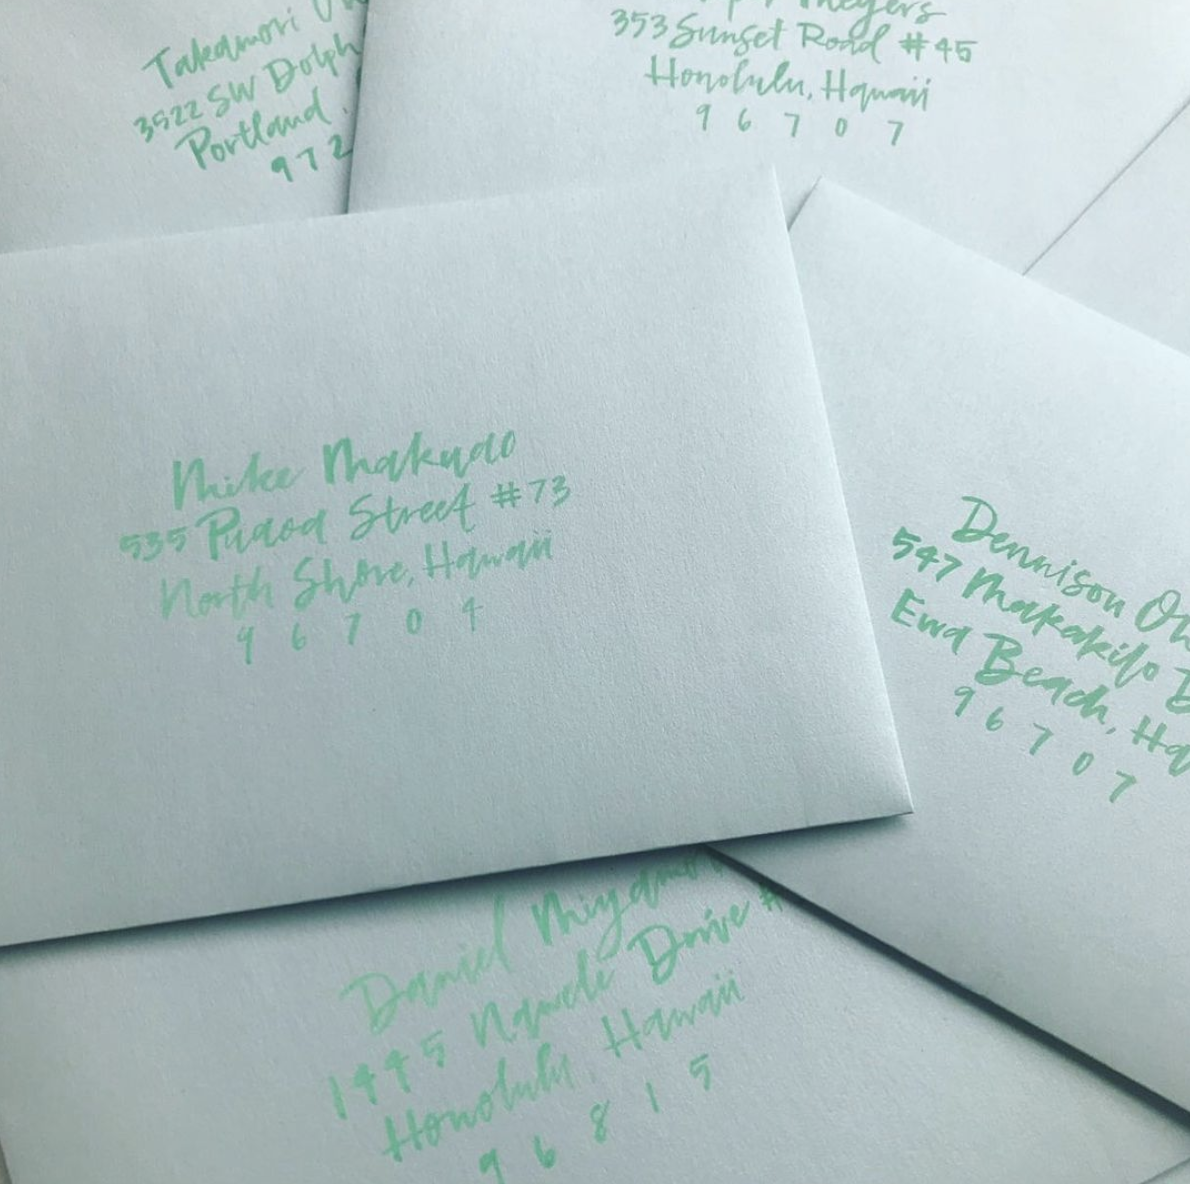 Takamori
3522 SW Dolph
Portland
972
Meyers
353 Sunset Road #45
Honolulu, Hawaii
96707
Mike Makuao
535 Puaoa Street #73
North Shore, Hawaii
96704
Dennison
547 Makakilo D
Ewa Beach, Ha
96707
Daniel Miyamo
1445 Namele Drive #
Honolulu, Hawaii
96815